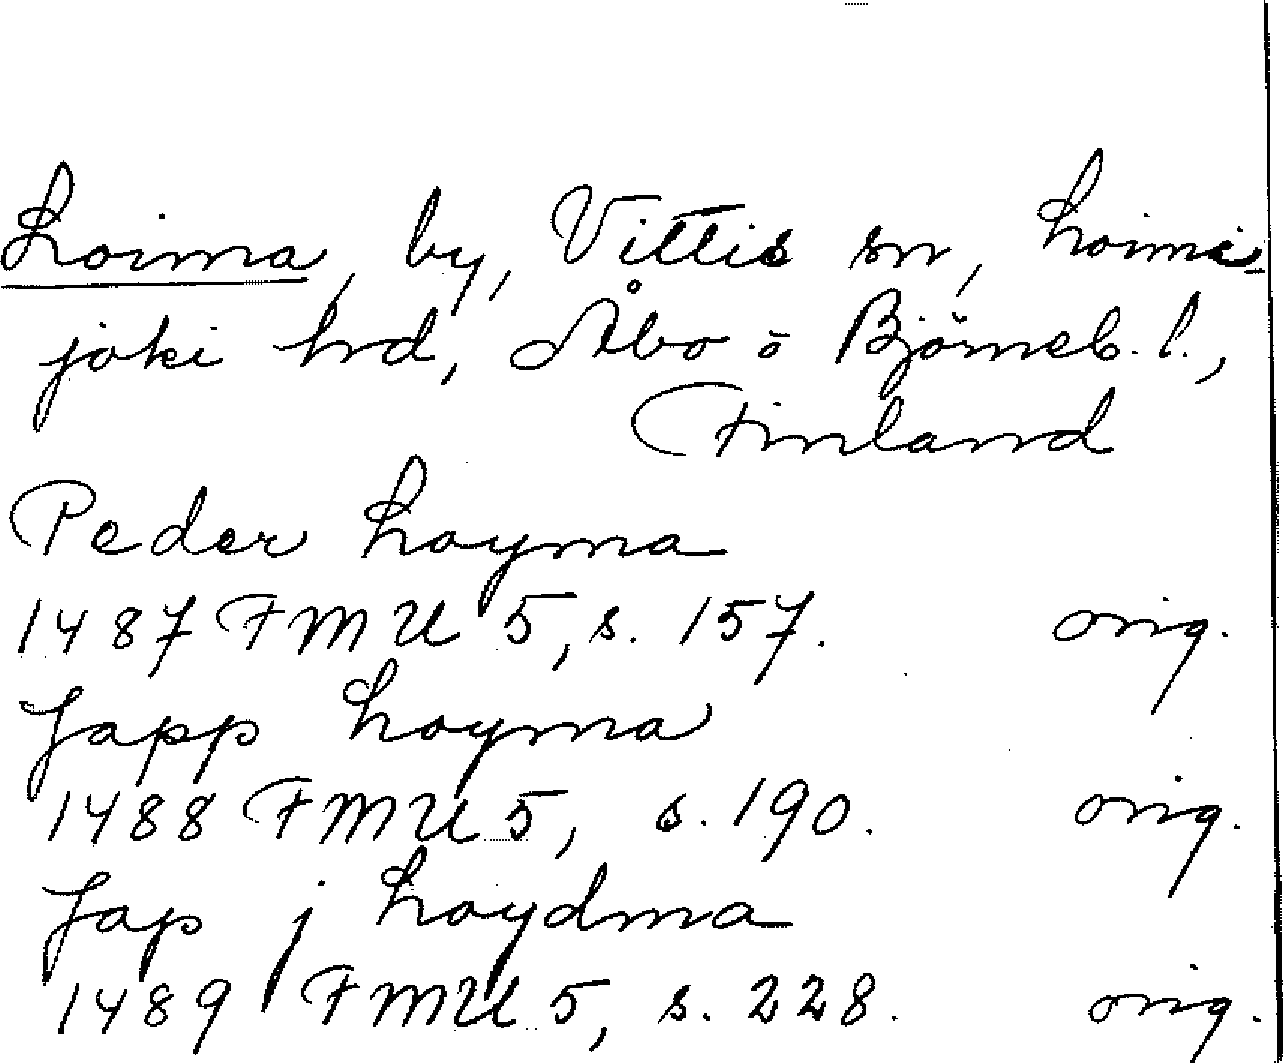 Loima, by, Vittis sn, Loimi
joki hrd, Åbo o Björneb. l.,
Finland
Peder Loyma
1487 FMU 5, s. 157. orig.
Japp Loyma
1488 FMU 5, s. 190. orig.
Jap j Loydma
1489 FMU 5, s. 228. orig.